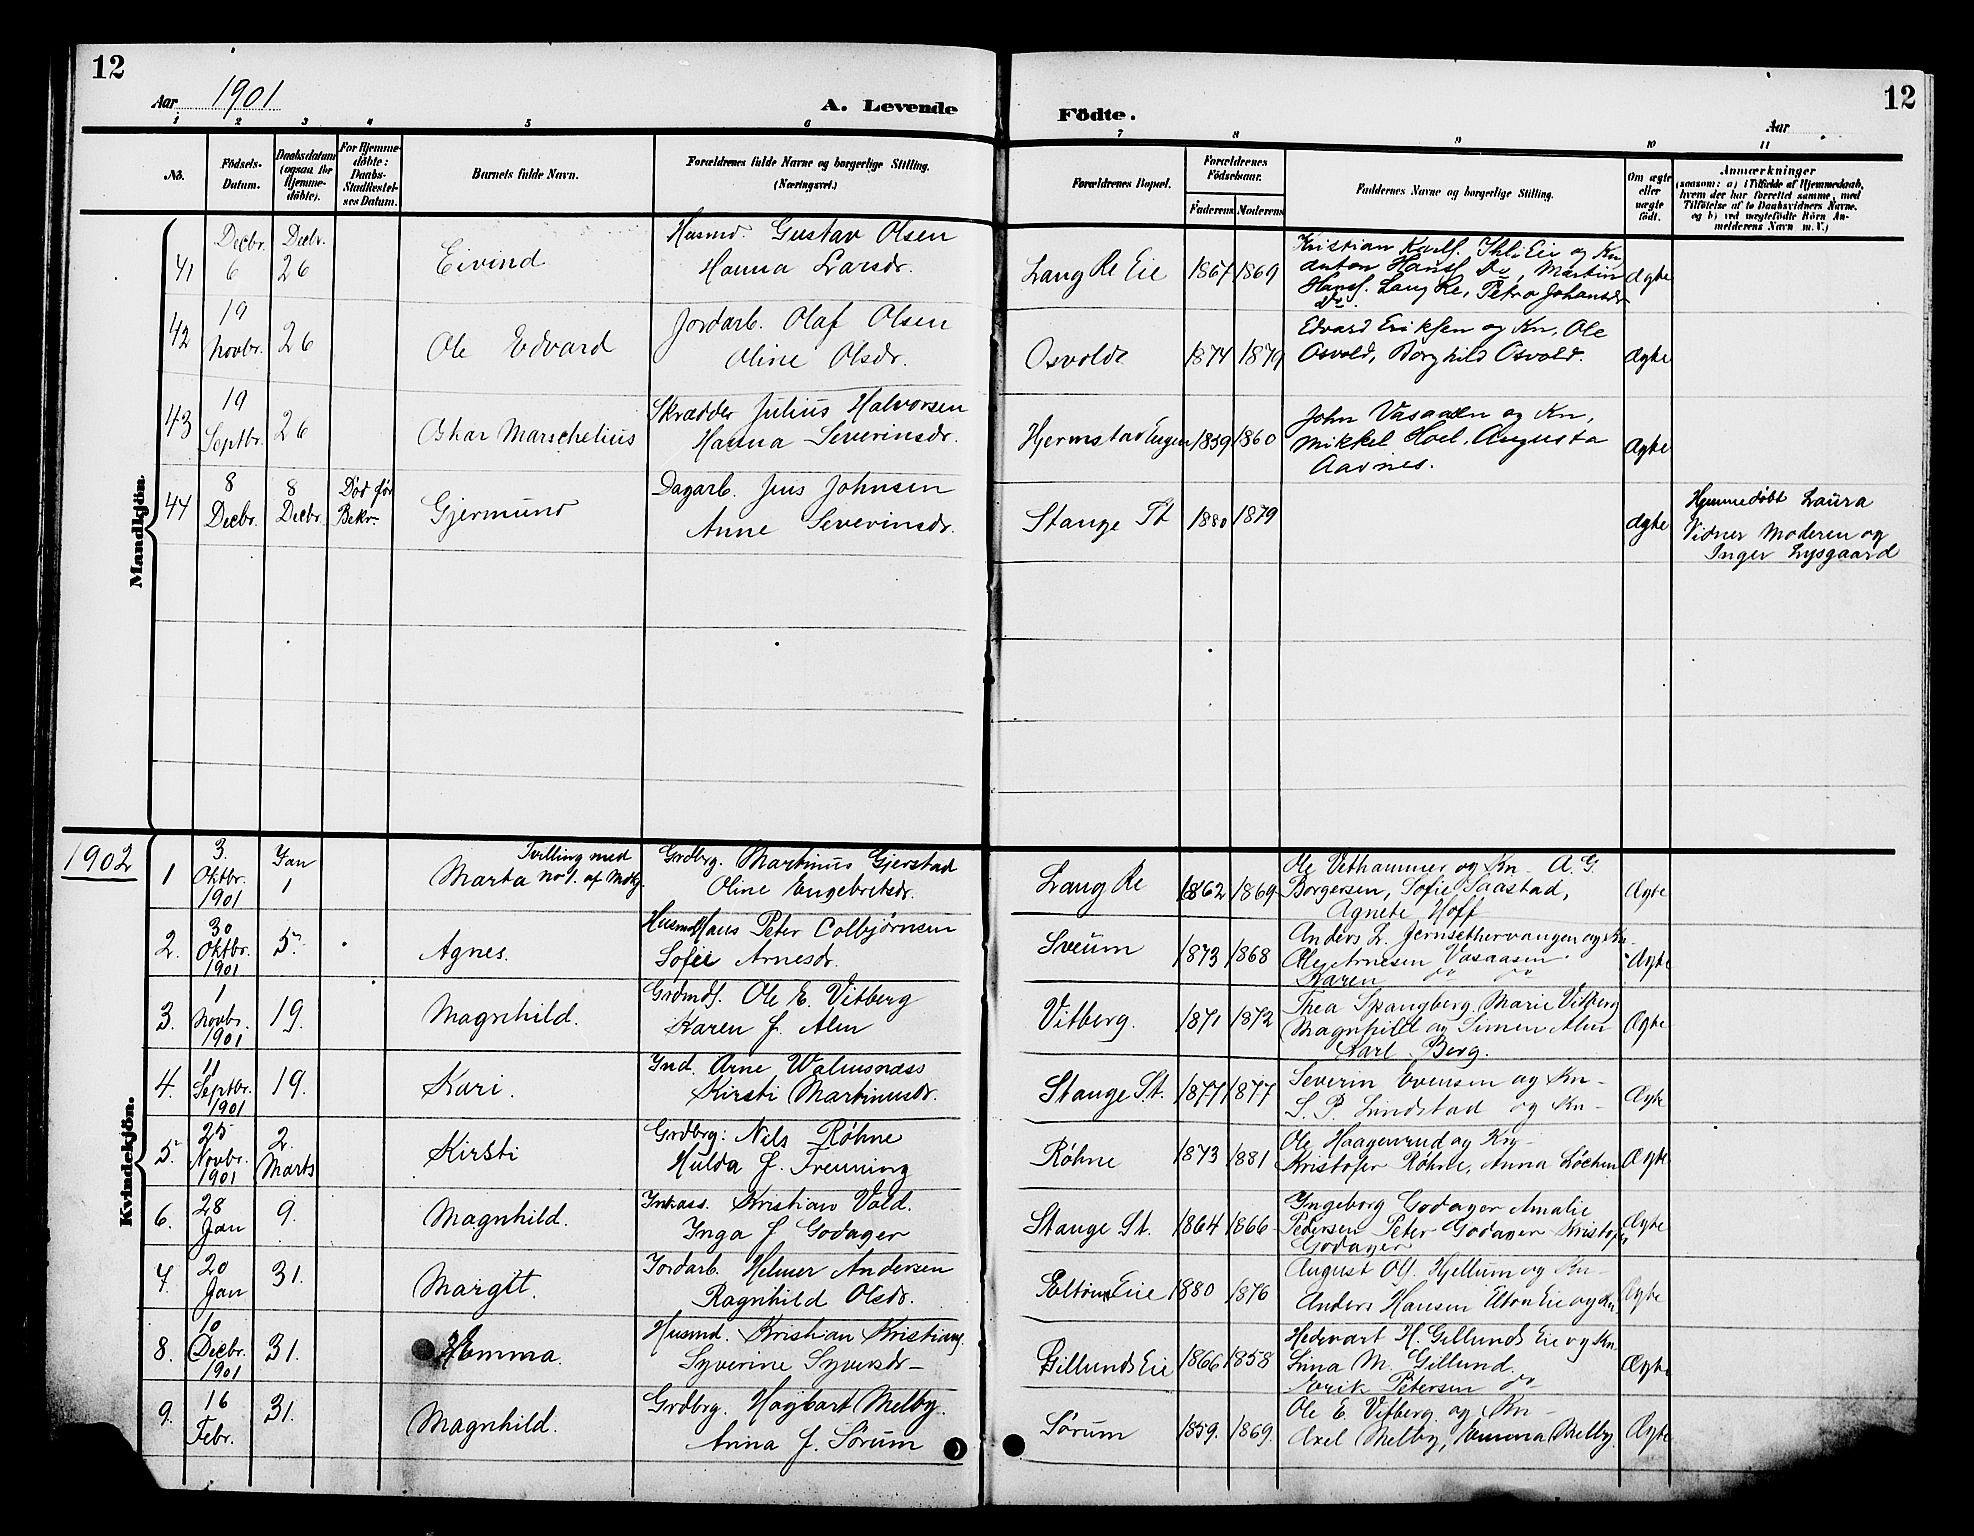 12
Aar 1901
A. Levende
Födte.
Aar
12
1 2 3 4 5 6 7 8 9 10 11
No.
Födsels-
Datum.
Daabsdatum
(ogsaa for
Hjemme-
döbte).
For Hjemme-
döbte:
Daabs-
Stadfestel-
ses Datum.
Barnets fulde Navn.
Forældrenes fulde Navne og borgerlige Stilling.
(Næringsvei.)
Forældrenes Bopæl.
Forældrenes
Födselsaar.
Faderens Moderens
Faddernes Navne og borgerlige Stilling.
Om ægte
eller
uægte
födt.
Anmærkninger
(saasom: a) i Tilfælde af Hjemmedaab,
hvem der har forrettet samme, med
Tilföielse af to Daabsvidners Navne.
og b) ved uægtefödte Börn An-
melderens Navn m. V.)
Mandkjön.
41
Decbr.
6
Decbr.
26
Eivind
Husmd. Gustav Olsen
Hanna Larsdr.
Lang Re Eie
1867 1869
Kristian Eie og Kn
Anton Hansf. Do, Martin
Hansf. Lang Re, Petra Johansdr
do.
Ægte
42
19
Novbr.
26
Ole Edvard
Jordarb. Olaf Olsen
Oline Olsdr.
Osvold
1874 1879
Edvard Eriksen og Kn, Ole
Osvold, Borghild Osvold.
Ægte
43
19
Septbr.
26
Oskar Marschelius
Skrædder Julius Halvorsen
Hanna Severinsdr.
Hjermstad Engen
1859 1860
John Vasaasen og Kn,
Mikkel Hoel, Augusta
Aavnes.
Ægte
44
8
Decbr.
8
Decbr.
Död för
Bekr.
Gjermund
Dagarb. Jens Johnsen
Anne Severinsdr.
Stange St
1880 1879
Ægte
Hjemmedöbt Laura
Vidner Moderen og
Inger Lysgaard
1902
Kvindekjön.
1
3.
Oktbr.
1901
Jan
1
Tvilling med
Marta no 1. af Mdkj.
Grdbrg. Martinus Gjerstad
Oline Engebretsdr.
Lang Re
1862 1869
Ole Vethammer og Kn- A. G.
Borgersen, Sofie Saastad,
Agnete Hoff
Ægte
2.
30
Oktbr.
1901
5.
Agnes.
Husmd Hans Peter Colbjørnsen
Sofie Arnesdr.
Sveum
1873 1868
Anders L. Jernsethervangen og Kn-
Ole Arnesen Vasaasen
Karen do do
Ægte
3.
1
Novbr.
1901
19.
Magnhild.
Grdmdf. Ole E. Vitberg
Karen J. Alm
Vitberg.
1871 1872
Thea Spangberg, Marie Vitberg
Magnhild og Simen Alm
Karl Berg.
Ægte
4.
11
Septbr.
1901
19.
Kari.
Ind. Arne Walmsnæss
Kirsti Martinusdr.
Stange St.
1877 1877
Severin Evensen og Kn-
S. P. Lundstad og Kn-
Ægte
5.
25
Novbr.
1901
2.
Marts
Kirsti
Grdbrg: Nils Røhne
Hulda J. Frenning
Røhne
1873 1881
Ole Haagenrud og Kn-
Kristofer Røhne, Anna Løchen
Ægte
6.
28
Jan
9.
Magnhild.
Inkass. Kristian Vold.
Inga J Godager
Stange St.
1864 1866
Ingeborg Godager Amalie
Pedersen Peter Godager Kristofer
Godager
Ægte
7.
20
Jan
31.
Margit.
Jordarb. Helmer Andersen
Ragnhild Olsdr.
Eie
1880 1876
August Olf. Hjellum og Kn-
Anders Hansen Eie og Kn
Ægte
8.
10
Decbr.
1901
31.
Emma.
Husmd. Kristian Kristiansf.
Syverine Syversdr-
Gillunds Eie
1866 1858
Hedevart H. Gillunds Eie og Kn
Lina M. Gillund.
Evrik Petersen do
Ægte
9.
16
Febr.
31.
Magnhild.
Grdbrg. Hagbart Melby.
Anna J. Sørum
Sørum
1859. 1869.
Ole E. Vitberg og Kn-
Axel Melby, Emma Melby.
Ægte